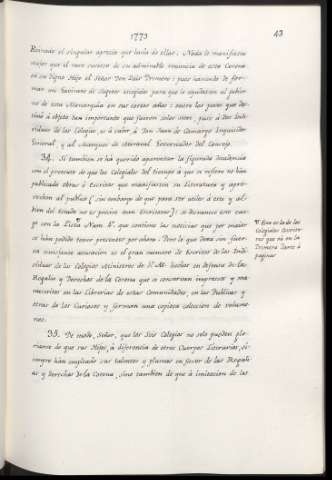 1773
43
Reinado el singular aprecio que hacía de ellas: Nada lo manifiesta
mejor que el raro suceso de su admirable renuncia de esta Corona
en su digno Hijo el Señor Don Luis Primero: pues haviendo de for-
mar un Gavinete de Sugetos escogidos para que le ayudasen al gobier-
no de esta Monarquía en sus cortos años: entre los pocos que des-
tinó á objeto tan importante que fueron solos siete, puso á dos Indi-
viduos de los Colegios, es á saber á Don Juan de Camargo Inquisidor
General, y al Marques de Miraval Governador del Consejo.
34. Si tambien se ha querido aparentar la figurada decadencia
con el pretexto de que los Colegiales del tiempo á que se refiere no han
publicado obras ó Escritos que manifiesten su Literatura y apro-
vechen al publico (sin embargo de que para ser utiles á este y al
bien del Estado no es preciso sean Escritores): se desvanece este car-
go con la Lista Num. 8º que contiene las noticias que por maior
se han podido tener presentes por ahora: Pero lo que dará sin fuer-
za ninguna acusacion es el gran numero de Escritos de los Indi-
viduos de los Colegios Ministros de V. M. hechos en defensa de las
Regalias y Derechos de la Corona que se conservan impresos y ma-
nuscritos en las Librerías de estas Comunidades, en las Publicas y
otras de los Curiosos y forman una copiosa coleccion de volume-
nes.
Esta es la de los
Colegiales Escrito-
res que vá en la
Primera Parte á
paginas
35. De modo, Señor, que los Seis Colegios no solo pueden glo-
riarse de que sus Hijos, á diferencia de otros Cuerpos Literarios, si-
empre han empleado sus talentos y plumas en favor de las Regali-
as y derechos de la Corona, sino tambien de que á imitacion de las